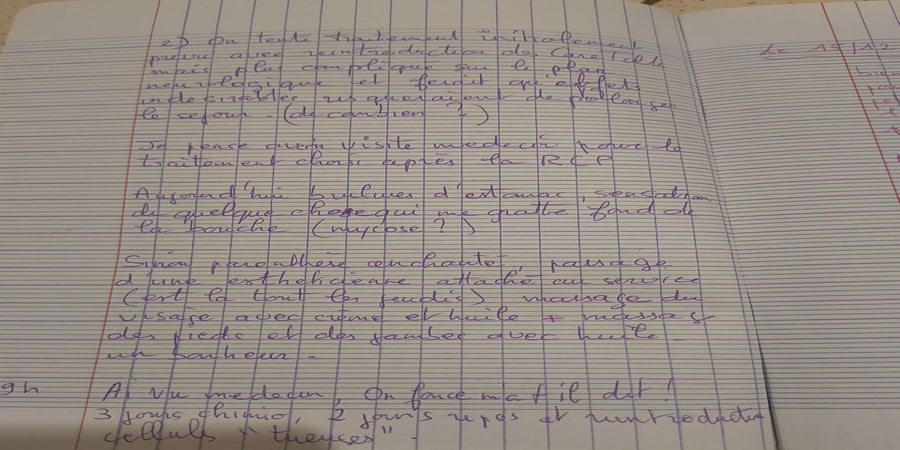 2) On tente traitement initialement
prévu avec reintroduction de
mais plus compliqué sur le plan
neurologique et ferait qu'effets
indesirables risqueraient de prolonger
le sejour - (de combien ?)
Je pense qu'en visite medecin pour le
traitement choisi après la RCP
Aujourd'hui brulures d'estomac, sensation
de quelque chose qui me gratte fond de
la bouche (mycose ?)
Sinon parenthèse enchantée, passage
d'une estheticienne attaché au service
(est là tout les jeudis) massage du
visage avec crème et huile + massage
des pieds et des jambes avec huile -
un bonheur -
9h
Ai vu medecin, On fonce m'a t'il dit !
3 jours chimio, 2 jours repos et reintroduction
cellules "tueuses" -
Le 19/12